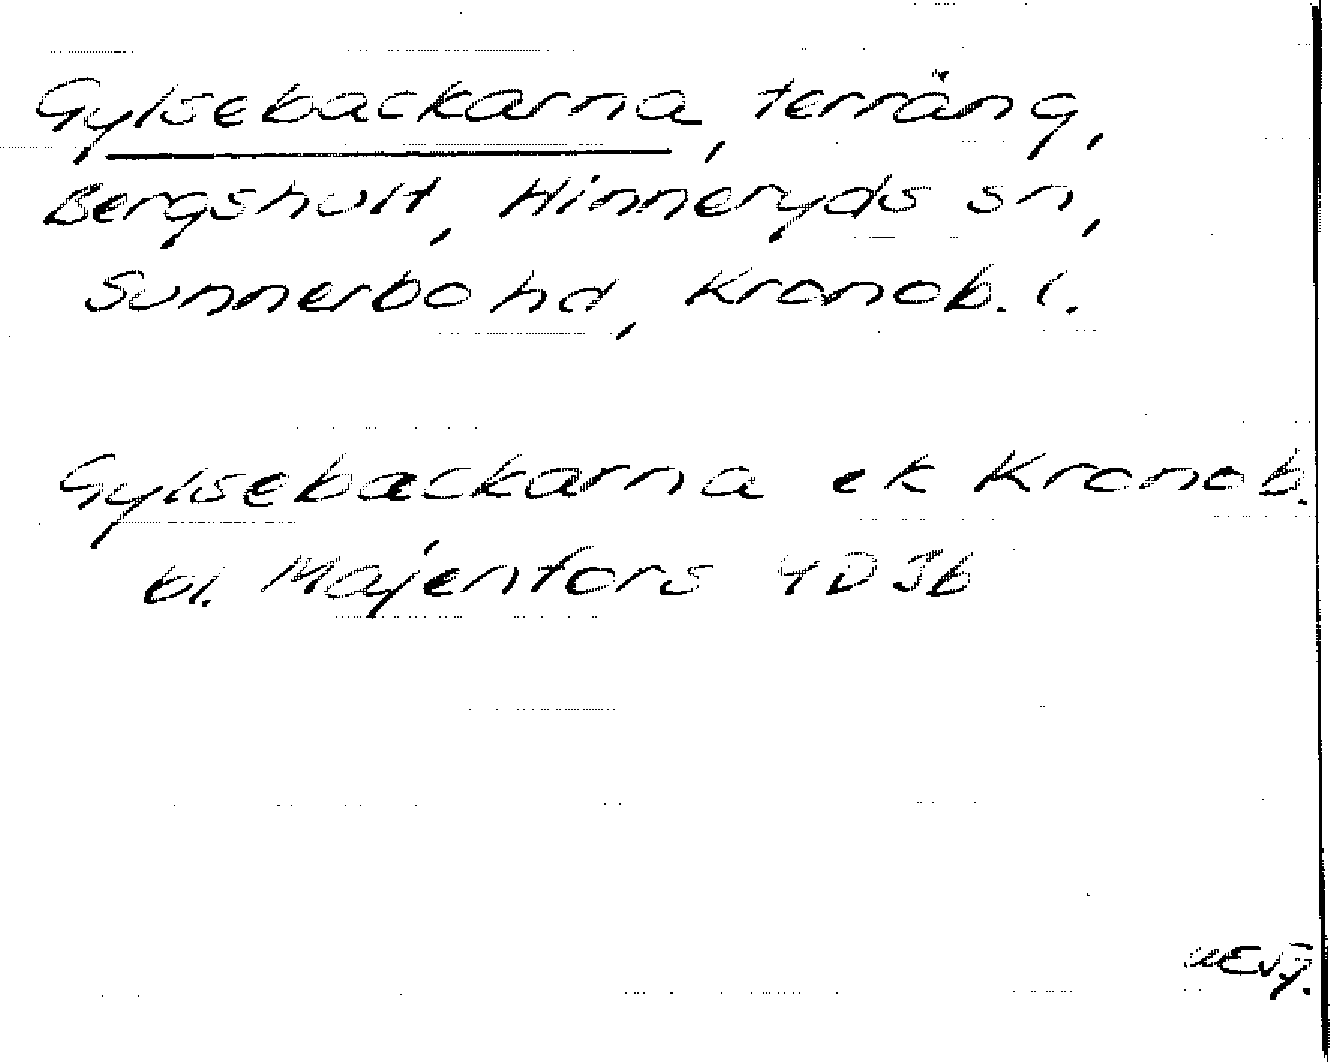 Gylsebackarna, terräng,
Bergshult, Hinneryds sn,
Sunnerbo hd, Kronob. l.
Gylsebackarna ek Kronob.
bl. Majenfors 4D Jb